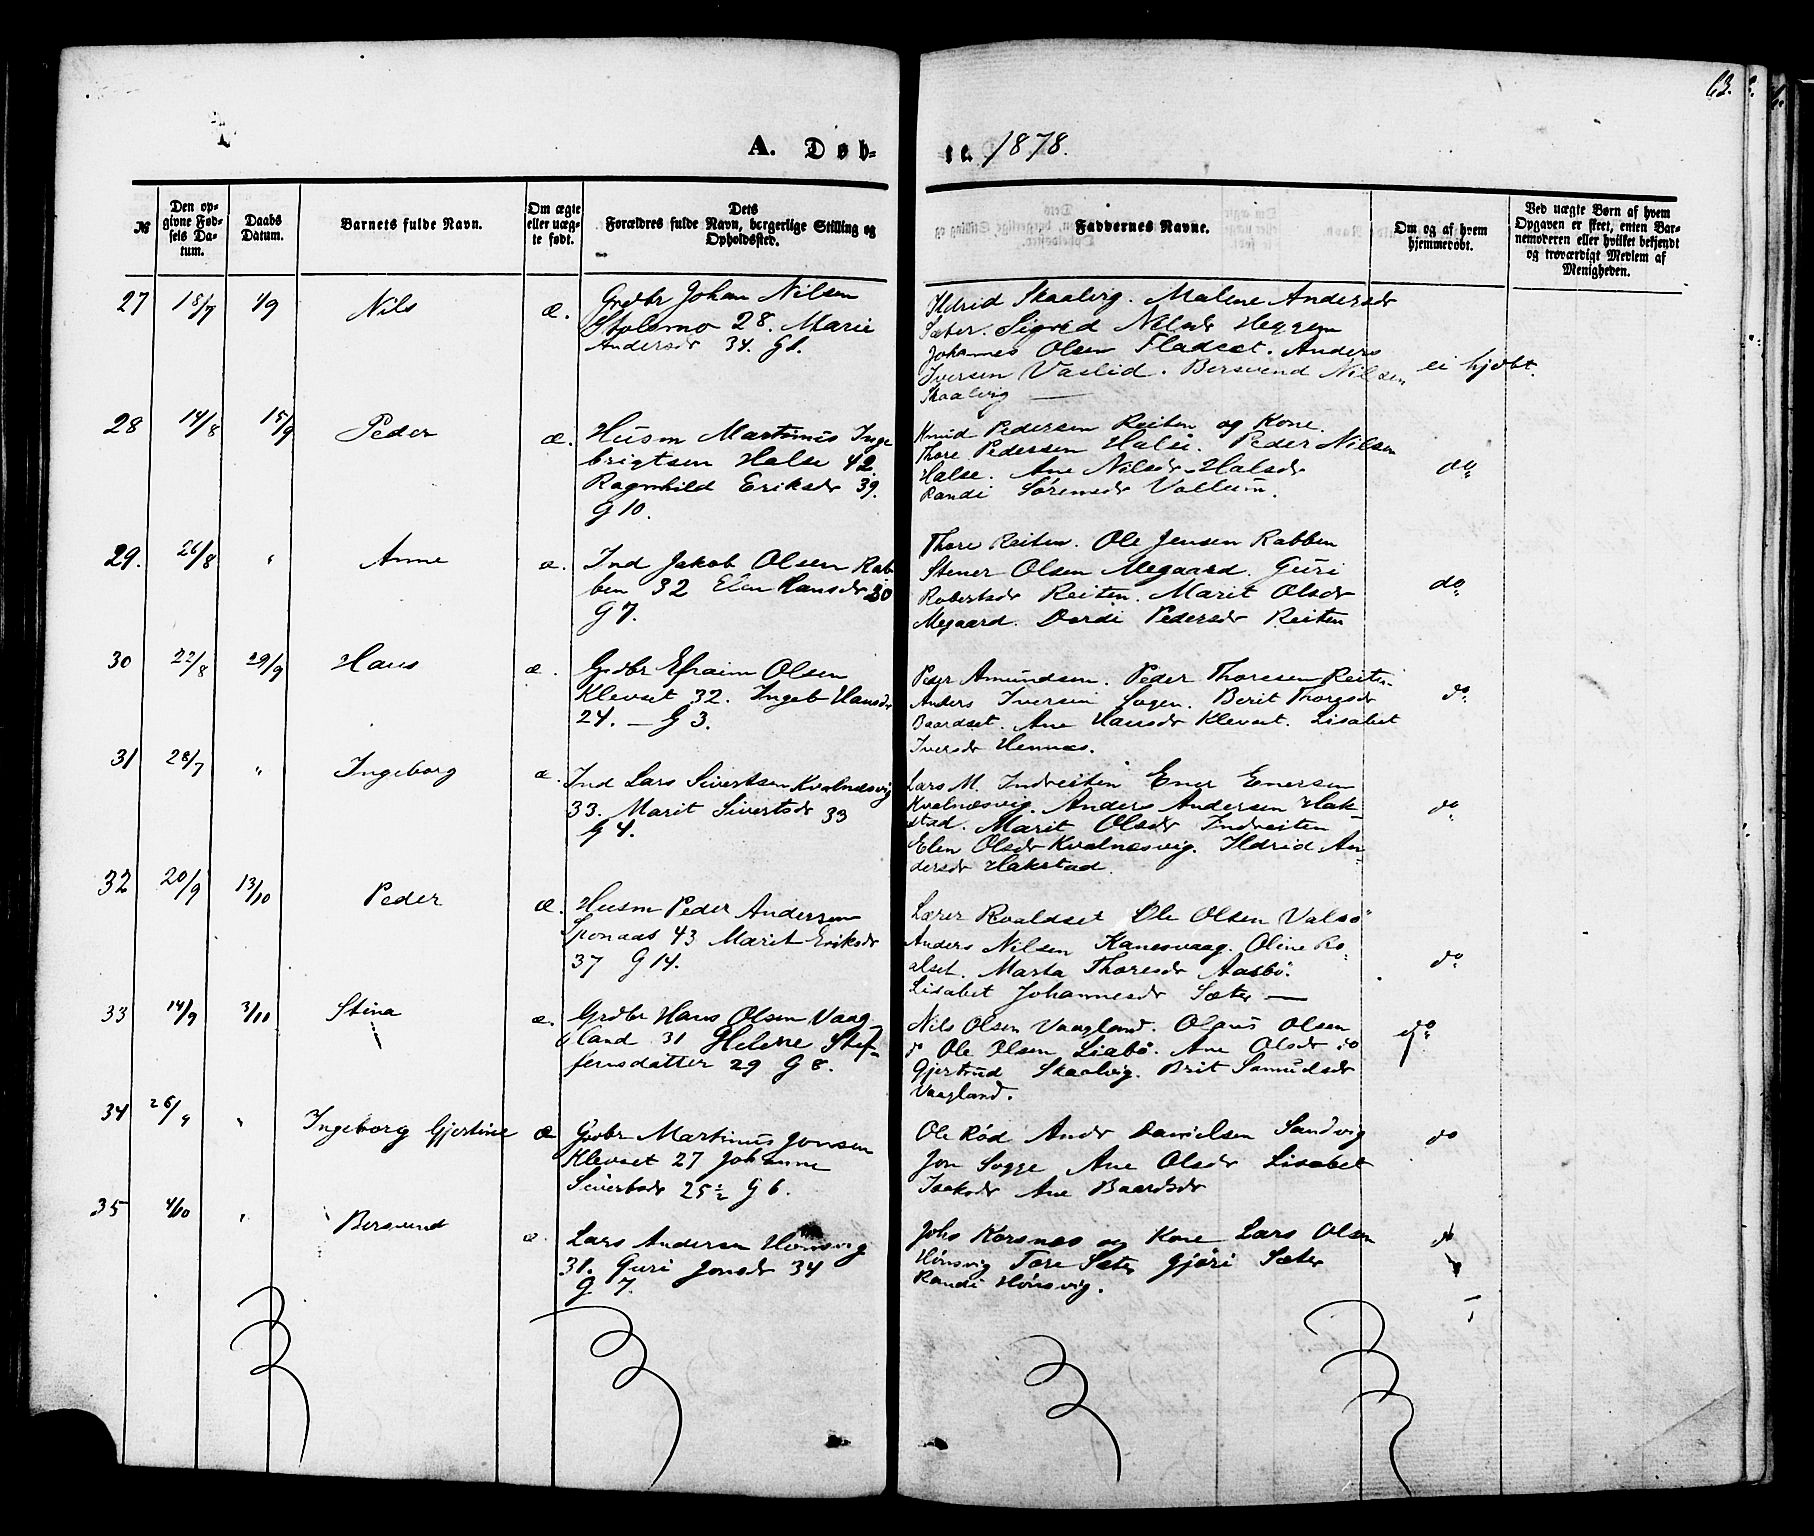 63.
A. Døb-
te. 1878.
№
Den op-
givne Fød-
sels Da-
tum.
Daabs
Datum.
Barnets fulde Navn.
Om ægte
eller uæg-
te født.
Dets
Forældres fulde Navn, borgerlige Stilling og
Opholdssted.
Faddernes Navne.
Om og af hvem
hjemmedøbt.
Ved uægte Børn af hvem
Opgaven er skeet, enten Bar-
nemoderen eller hvilket bekjendt
og troværdigt Medlem af
Menigheden.
27 18/7 1/9 Nils æ.
Grdbr Johan Nilsen
Stolsmo 28. Marie
Andersdr 34. G 1.
Ildrid Skaalvig. Malene Andersdr
Sæter. Sigrid Nilsdr Heggem
Johannes Olsen Fladset. Anders
Iversen Vaslid. Bersvend Nilsen
Skaalvig
ei hjdbt.
28 14/8 15/9 Peder æ.
Husm Martinus Inge
brigtsen Halse 42.
Ragnhild Eriksdr 39.
G 10.
Knud Pedersen Reiten og Kone.
Thore Pedersen Halse. Peder Nilsen
Halse. Ane Nilsdr Halsdr
Randi Sørensdr Vollum.
do
29. 26/8 " Anne æ.
Ind Jakob Olsen Rab
ben 32 Elen Hansdr 30
G 7.
Thore Reiten. Ole Jensen Rabben
Stener Olsen Megaard. Guri
Robertsdr Reiten. Marit Olsdr
Megaard. Dordi Pedersdr Reiten
do
30 22/8 29/9 Hans æ.
Grdbr Efraim Olsen
Klevset 32. Ingeb Hansdr
24. — G 3.
Peder Amundsen. Peder Thoresen Reiten
Anders Iversen. Berit Thoresdr
Baardset. Ane Hansdr Klevset. Lisabet
Iversdr Hennes.
do
31 28/7 " Ingeborg æ.
Ind Lars Sivertsen Kvalnæsvig
33. Marit Sivertsdr 33
G 4.
Lars M. Indreiten Ener Enersen
Kvalnæsvig. Anders Andersen Hak-
stad. Marit Olsdr Indreiten
Elen Olsdr Kvalnæsvig. Ildrid An-
dersdr Hakstad.
do
32 20/9 13/10 Peder æ.
Husm Peder Andersen
Sponaas 43 Marit Eriksdr
37 G 14.
Lærer Roaldset Ole Olsen Valsø
Anders Nilsen Kanesvaag. Oline Ro-
alset. Marta Thoresdr Aasbø.
Lisabet Johannesdr Sæter —
do
33 14/9 3/10 Stina æ.
Grdbr Hans Olsen Vaag-
land 31 Helene Stef-
fensdatter 29 G 8.
Nils Olsen Vaagland. Olaus Olsen
do Ole Olsen Liabø. Ane Olsdr do
Gjertrud Skaalvig. Brit Samuelsdr
Vaagland.
do
34 26/" " Ingeborg Gjertine æ
Grdbr Martinus Jonsen
Klevset 27 Johanne
Sivertsdr 25½ G 6.
Ole Rød Andr Danielsen Sandvig
Jon Sogge Ane Olsdr Lisabet
Isaksdr Ane Baardsdr
do
35 4/10 " Bersvend æ.
Lars Andersen Hønsvig
31. Guri Jonsdr 34
G 7.
Johs Korsnes og Kone Lars Olsen
Hønsvig Tore Sæter Gjøri Sæter
Randi Hønsvig.
do